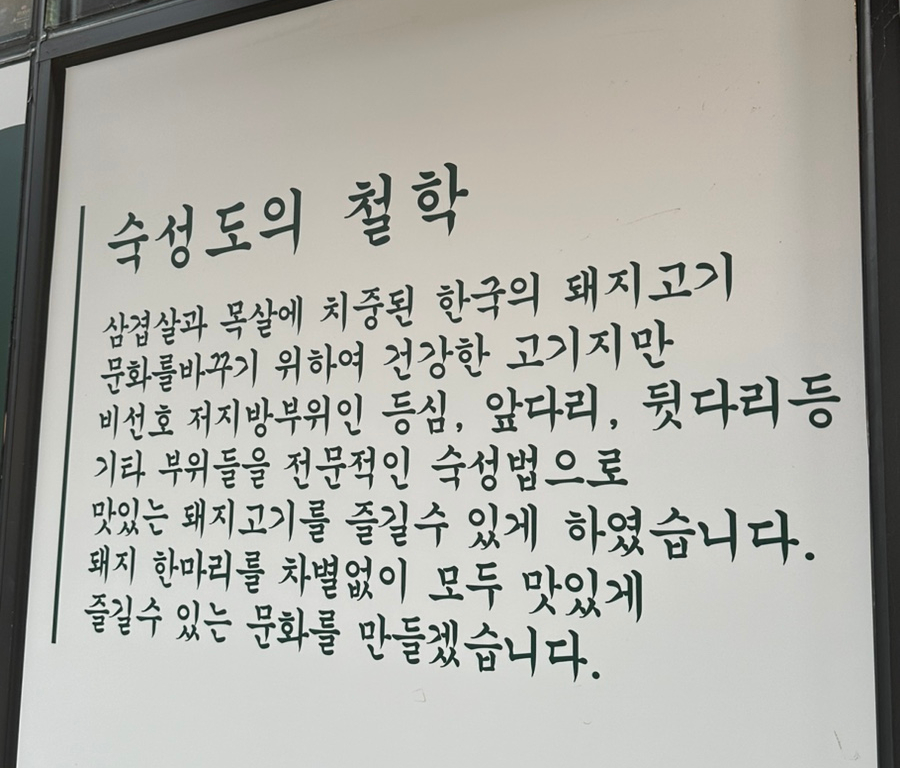 숙성도의 철학
삼겹살과 목살에 치중된 한국의 돼지고기
문화를바꾸기 위하여 건강한 고기지만
비선호 저지방부위인 등심, 앞다리, 뒷다리등
기타 부위들을 전문적인 숙성법으로
맛있는 돼지고기를 즐길수 있게 하였습니다.
돼지 한마리를 차별없이 모두 맛있게
즐길수 있는 문화를 만들겠습니다.